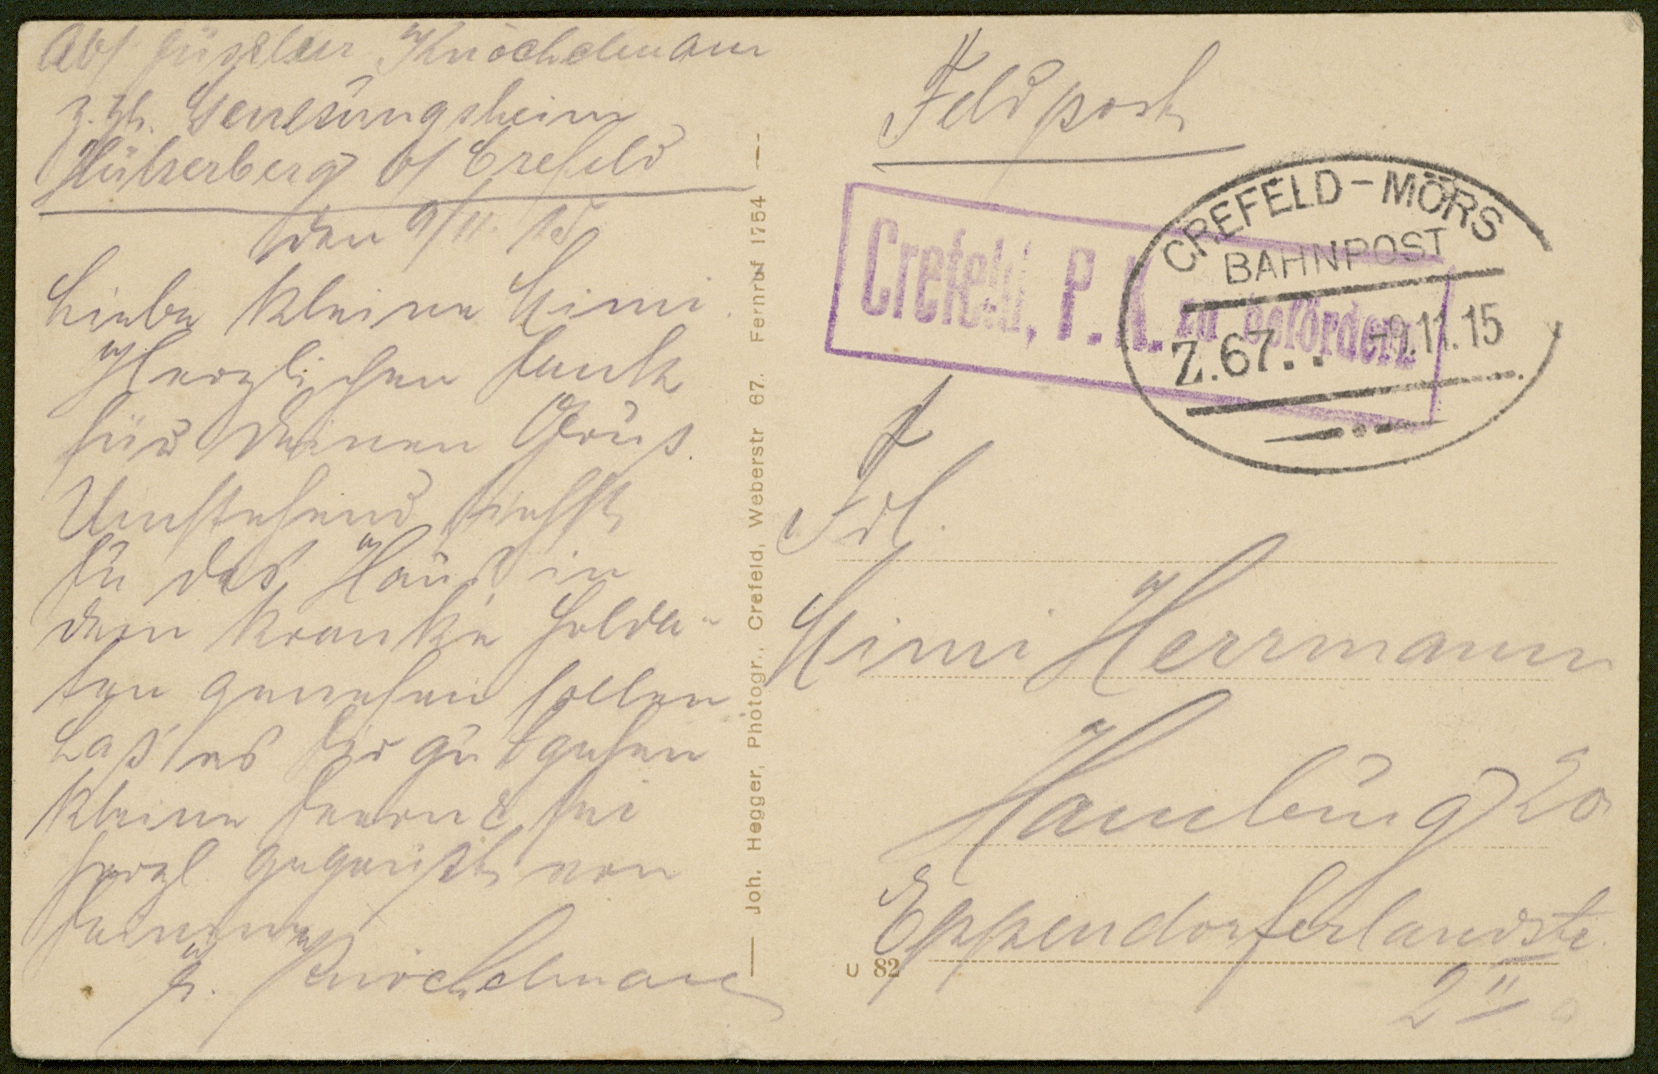 Abs. Füsilier Knöchelmann
z. Zt. Genesungsheim
Hülserberg b/ Crefeld
den 9/11. 15
Liebe kleine Mimi
Herzlichen Dank
für Deinen Grus.
Umstehend siehst
Du das Haus in
dem kranke Solda-
ten genesen sollen
Lass es Dir gut gehen
kleine Freundin sei
herzl gegrüsst von
Deinem
Knöchelmann
Joh. Hegger, Photogr., Crefeld, Weberstr 67. Fernruf 1754
Feldpost
Crefeld, P. K. zu befördern
CREFELD - MÖRS
BAHNPOST
Z.67.. -9.11.15
Frl.
Mimi Herrmann
Hamburg 20
Eppendorferlandstr.
2 II
U 82